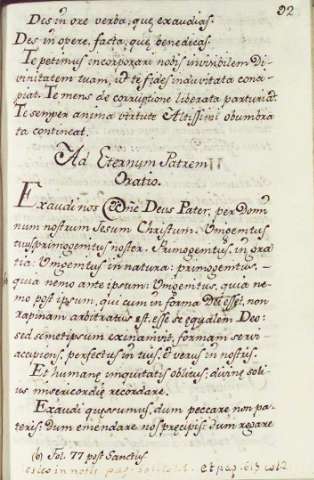 92
Des in ore verba, quę exaudias.
Des in opere, facta, quę benedicas.
Te petimus incorporari nobis invisibilem Di-
vinitatem tuam, id te fides inauvitata conci-
piat. Te mens de corruptione liberata parturiat.
Te semper anima virtute Altissimi obumbra-
ta contineat.
Ad Eternum Patrem
Oratio.
Exaudi nos Dne Deus Pater, per Domi-
num nostrum Jesum Christum: Unigenitus
tuus primogenitus noster. Primogenitus, in gra-
tia: Unigenitus in natura: primogenitus, -
quia nemo ante ipsum: Unigenitus, quia ne-
mo post ipsum, qui cum in forma Dei esset, non
rapinam arbitratus est, esse se equalem Deo:
sed semetipsum exinanivit, formam servi-
accipiens, perfectus in tuis, & verus in nostris.
Et humanę iniquitatis oblitus; divinę soli-
us misericordię recordare.
Exaudi quęsumus, dum peccare non pa-
teris: dum emendare nos pręcipis; dum rogare
(b) Fol. 77 post Sanctus
esto in notis pag. col. 1. et pag. 613 col 2